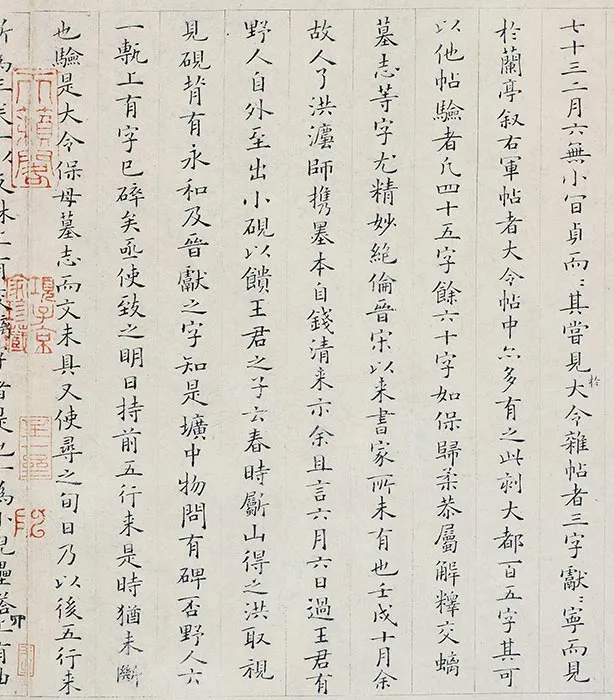 七十三二月六無小官貞而二其嘗見大令雜帖者三字獻二寧而見
於
於蘭亭叙右軍帖者大令帖中亦多有之此刻大都百五字其可
以他帖驗者凡四十五字餘六十字如保歸柔恭屬解釋交螭
墓志等字尤精妙絶倫晉宋以来書家所未有也壬戌十月余
故人了洪灋師攜墨本自錢清来示余且言六月六日過王君有
野人自外至出小硯以饋王君之子云春時斸山得之洪取視
見硯背有永和及晉獻之字知是壙中物問有碑否野人云
一甎上有字已碎矣亟使致之明日持前五行来是時猶未斷
也驗是大令保母墓志而文未具又使尋之旬日乃以後五行来
天籟閣
項子京家珍藏